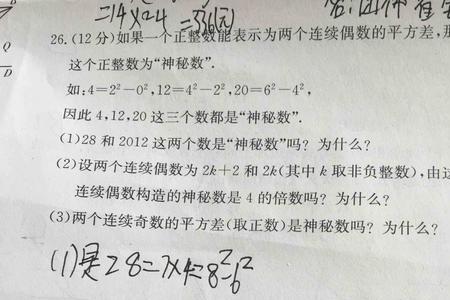 =14×24=336(元)
Q
D
26.(12分)如果一个正整数能表示为两个连续偶数的平方差,
这个正整数为“神秘数”.
如:4=2²-0²,12=4²-2²,20=6²-4²,
因此4,12,20这三个数都是“神秘数”.
(1)28和2012这两个数是“神秘数”吗? 为什么?
(2)设两个连续偶数为2k+2和2k(其中k取非负整数),由这
连续偶数构造的神秘数是4的倍数吗? 为什么?
(3)两个连续奇数的平方差(取正数)是神秘数吗? 为什么?
(1)是28=7×4=8²-6²